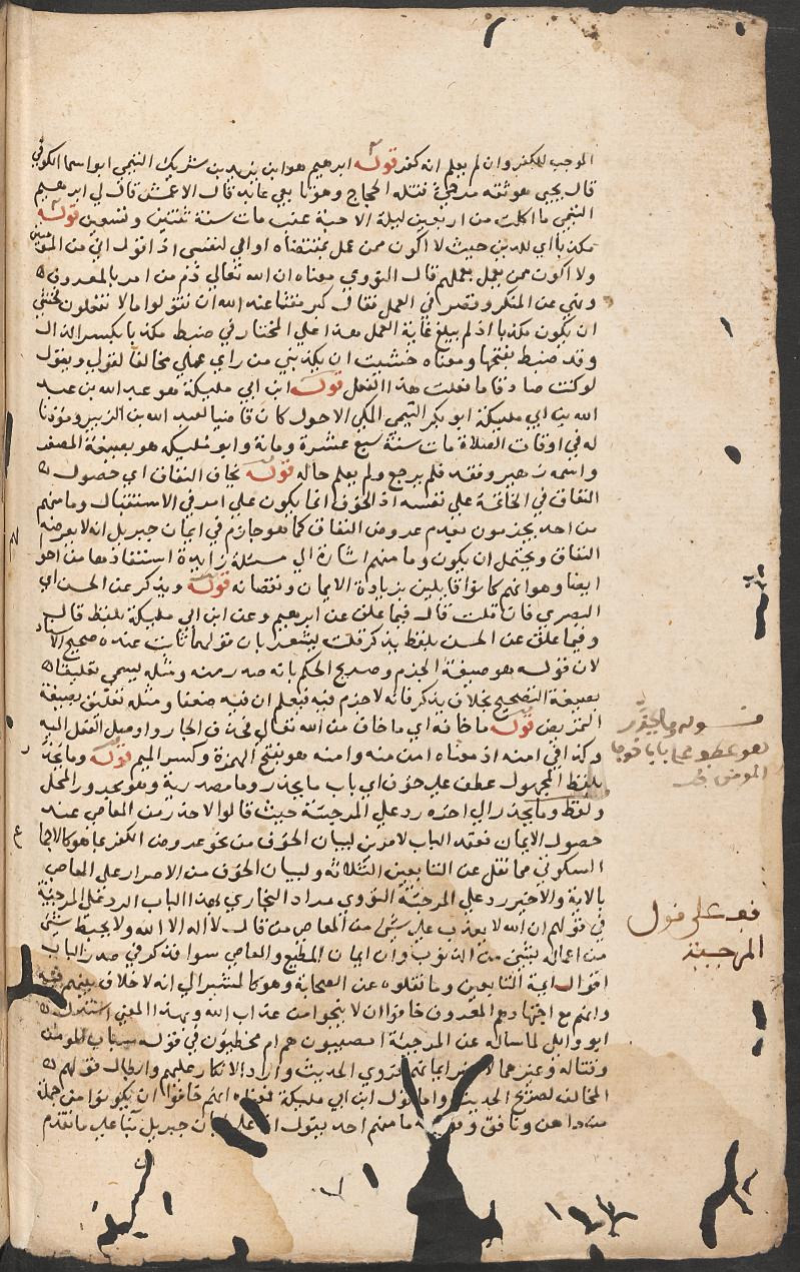 الموجب للكفر وان لم يعلم انه كفر قوله ابرهيم هو ابن يزيد بن شريك التيمي ابو اسما الكوفي
قال يحيى هو ثقه مرجئ قتله الحجاج وهو تابعي عابد قال الاعمش قال لي ابرهيم
التيمي ما اكلت من اربعين ليلة الا حبة عنب مات سنة ثنتين وتسعين قوله
مكذبا اي للدين حيث لا اكون ممن عمل بمقتضاه او اني لنفسي اذ اقول اني من المؤمنين
ولا اكون ممن يعمل بعملهم قال النووي معناه ان الله تعالى ذم من امر بالمعروف
ونهى عن المنكر وقصر في العمل فقال كبر مقتا عند الله ان تقولوا ما لا تفعلون فخشي
ان يكون مكذبا اذ لم يبلغ غاية العمل هذا علي المختار في ضبط مكذبا بكسر الذال
وقد ضبط بفتحها ومعناه خشيت ان يكذبني من راي عملي مخالفا لقولي ويقول
لو كنت صادقا ما فعلت هذا الفعل قوله ابن ابي مليكة هو عبد الله بن عبيد
الله بن ابي مليكة ابو بكر التيمي المكي الاحول كان قاضيا لعبد الله بن الزبير ومؤذنا
له في اوقات الصلاة مات سنة سبع عشرة ومائة وابو مليكه هو بصيغة المصغر
واسمه زهير وفقد فلم يرجع ولم يعلم حاله قوله يخاف النفاق اي حصول
النفاق في الخاتمة علي نفسه اذ الخوف انما يكون علي امر في الاستقبال وما منهم
من احد يجزمون بعدم عروض النفاق كما هو جازم في ايمان جبريل انه لا يعرضه
النفاق ويحتمل ان يكون وما منهم اشارة الي مسئلة زايدة استفادها من احو
ايضا وهو انهم كانوا قايلين بزيادة الايمان ونقصانه قوله ويذكر عن الحسن اي
البصري فان قلت قال فيما علق عن ابرهيم وعن ابن ابي مليكة بلفظ قال
وفيما علق عن الحسن بلفظ يذكر قلت ليشعر بان قولهما ثابت عنده صحيح الاسناد
لان قوله هو صيغة الجزم وصريح الحكم بانه صدر منه ومثله يسمي تعليقا
بصيغة التصحيح بخلاف يذكر فانه لا جزم فيه فيعلم ان فيه ضعفا ومثله تعليق بصيغة
التمريض قوله ما خافه اي ما خاف من الله تعالى فحذف الجار واوصل الفعل اليه
وكذا في امنه اذ معناه امن منه وامنه هو بفتح الهمزة وكسر الميم قوله وما يحذر
بلفظ المجهول عطف علي خوف اي باب ما يحذر وما مصدرية وهو مجرور المحل
ولفظ وما يحذر الي اخره رد علي المرجئة حيث قالوا لا حذر من المعاصي عند
حصول الايمان فعقد الباب لامرين لبيان الخوف من نحو عروض الكفر بما هو كالاجماع
السكوتي مما نقل عن التابعين الثلاثة ولبيان الخوف من الاصرار علي المعاصي
بالاية والاخير رد علي المرجئة النووي مراد البخاري بهذا الباب الرد علي المرجئة
في قولهم ان الله لا يعذب علي شيء من المعاصي من قال لا اله الا الله ولا يحبط شيئ
من اعماله بشيئ من الذنوب وان ايمان المطيع والعاصي سوا فذكر في صدر الباب
اقوال ايمة التابعين وما نقلوه عن الصحابة وهو كالمشير الي انه لا خلاف بينهم فيه
وانهم مع اجتهادهم المعروف خافوا ان لا ينجوا من عذاب الله وبهذا المعني استدل
ابو وايل لما ساله عن المرجئة امصيبون هم ام مخطيون في قوله سباب المومن
وقتاله وغيرهما ايمانهم فروي الحديث واراد الانكار عليهم وابطال قولهم
المخالف لصريح الحديث واما قول ابن ابي مليكة فمعناه انهم خافوا ان يكونوا من جملة
من داهن ونافق وقوله ما منهم احد يقول انه علي ايمان جبريل مبنيا علي ما تقدم
قوله وما يحذر
هو عطف علي باب خوف
المومن
قف على قول
المرجيئة